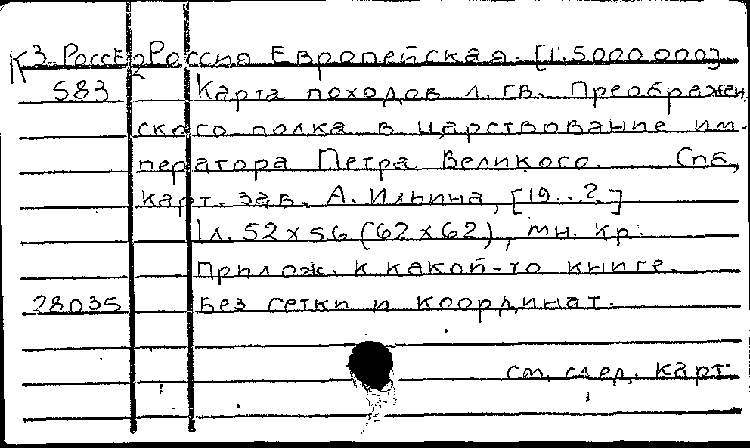 К 3-РоссЕ2 Россия Европейская. [1:5000000].
583 Карта походов л. гв. Преображен
ского полка в царствование им-
ператора Петра Великого. Спб,
карт. зав. А. Ильина, [19..?]
1 л. 52x56 (62x62), мн. кр.
Прилож. к какой-то книге.
28035 Без сетки и координат.
см. след. карт.